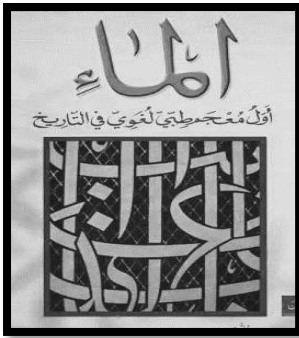 الماء
أوّلُ مُعْجَم طِبّيّ لُغَويّ في التّاريخ